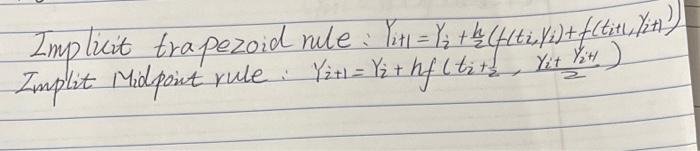 Implicit trapezoid rule : Y_{i+1} = Y_i + \frac{h}{2}(f(t_i, Y_i) + f(t_{i+1}, Y_{i+1}))
Implit Midpoint rule : Y_{i+1} = Y_i + hf(t_{i+\frac{1}{2}}, \frac{Y_i + Y_{i+1}}{2})